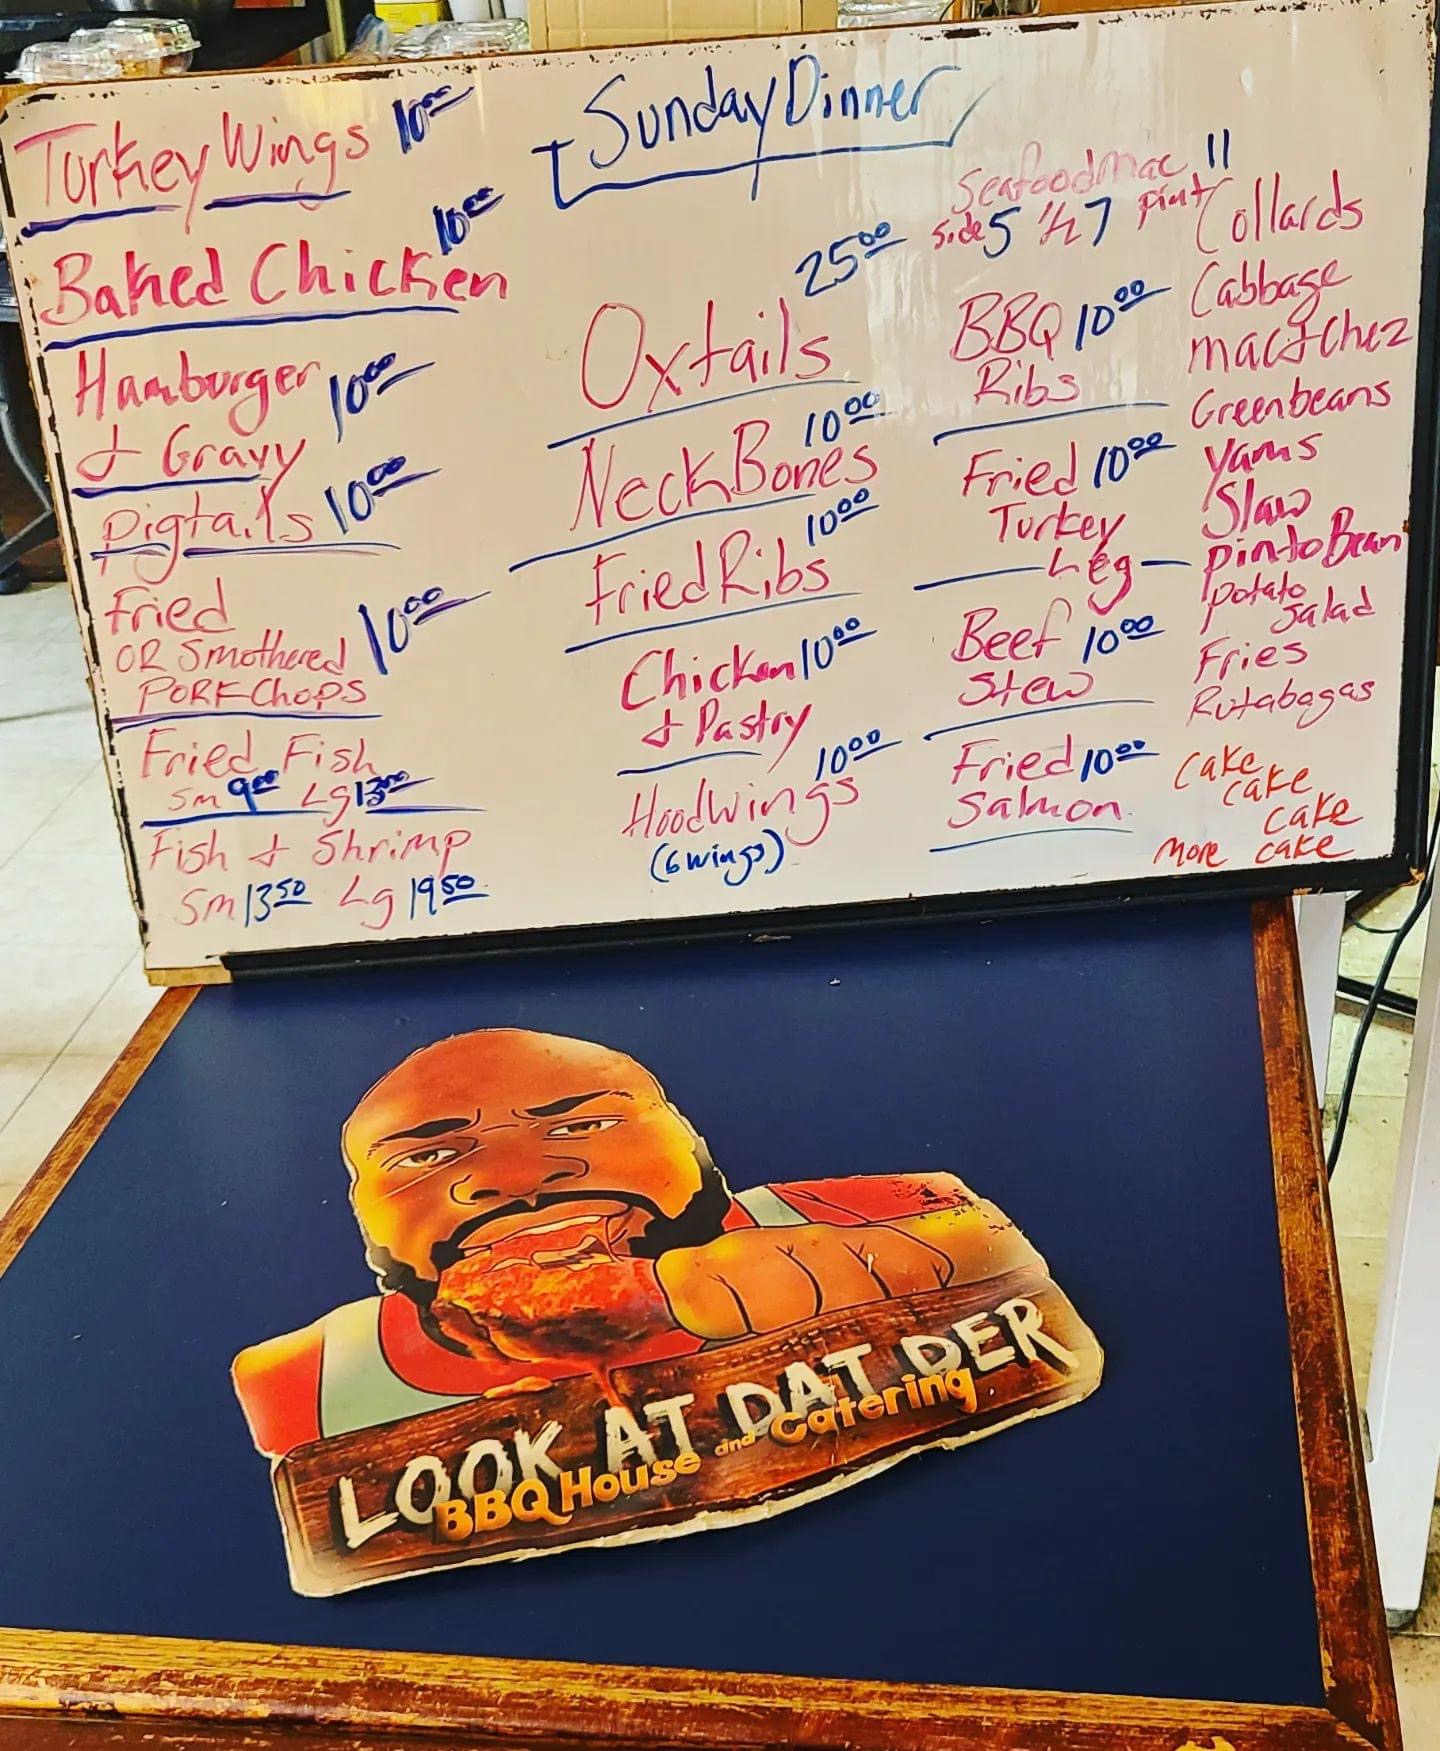 Sunday Dinner
Turkey Wings 10.00
Baked Chicken 10.00
Hamburger
& Gravy 10.00
pigtails 10.00
Fried
OR Smothered 10.00
PORK Chops
Fried Fish
Sm 9.00 Lg 13.00
Fish & Shrimp
Sm 13.50 Lg 19.50
Oxtails 25.00
Neck Bones 10.00
Fried Ribs 10.00
Chicken 10.00
& Pastry
Hoodwings 10.00
(6 wings)
Seafood mac
side 5 1/2 7 pint 11
BBQ 10.00
Ribs
Fried 10.00
Turkey
Leg
Beef 10.00
Stew
Fried 10.00
Salmon
Collards
Cabbage
mac & Chez
Greenbeans
yams
Slaw
pinto Bean
potato
Salad
Fries
Rutabagas
Cake
Cake
Cake
More Cake
LOOK AT DAT DER
BBQ House and Catering